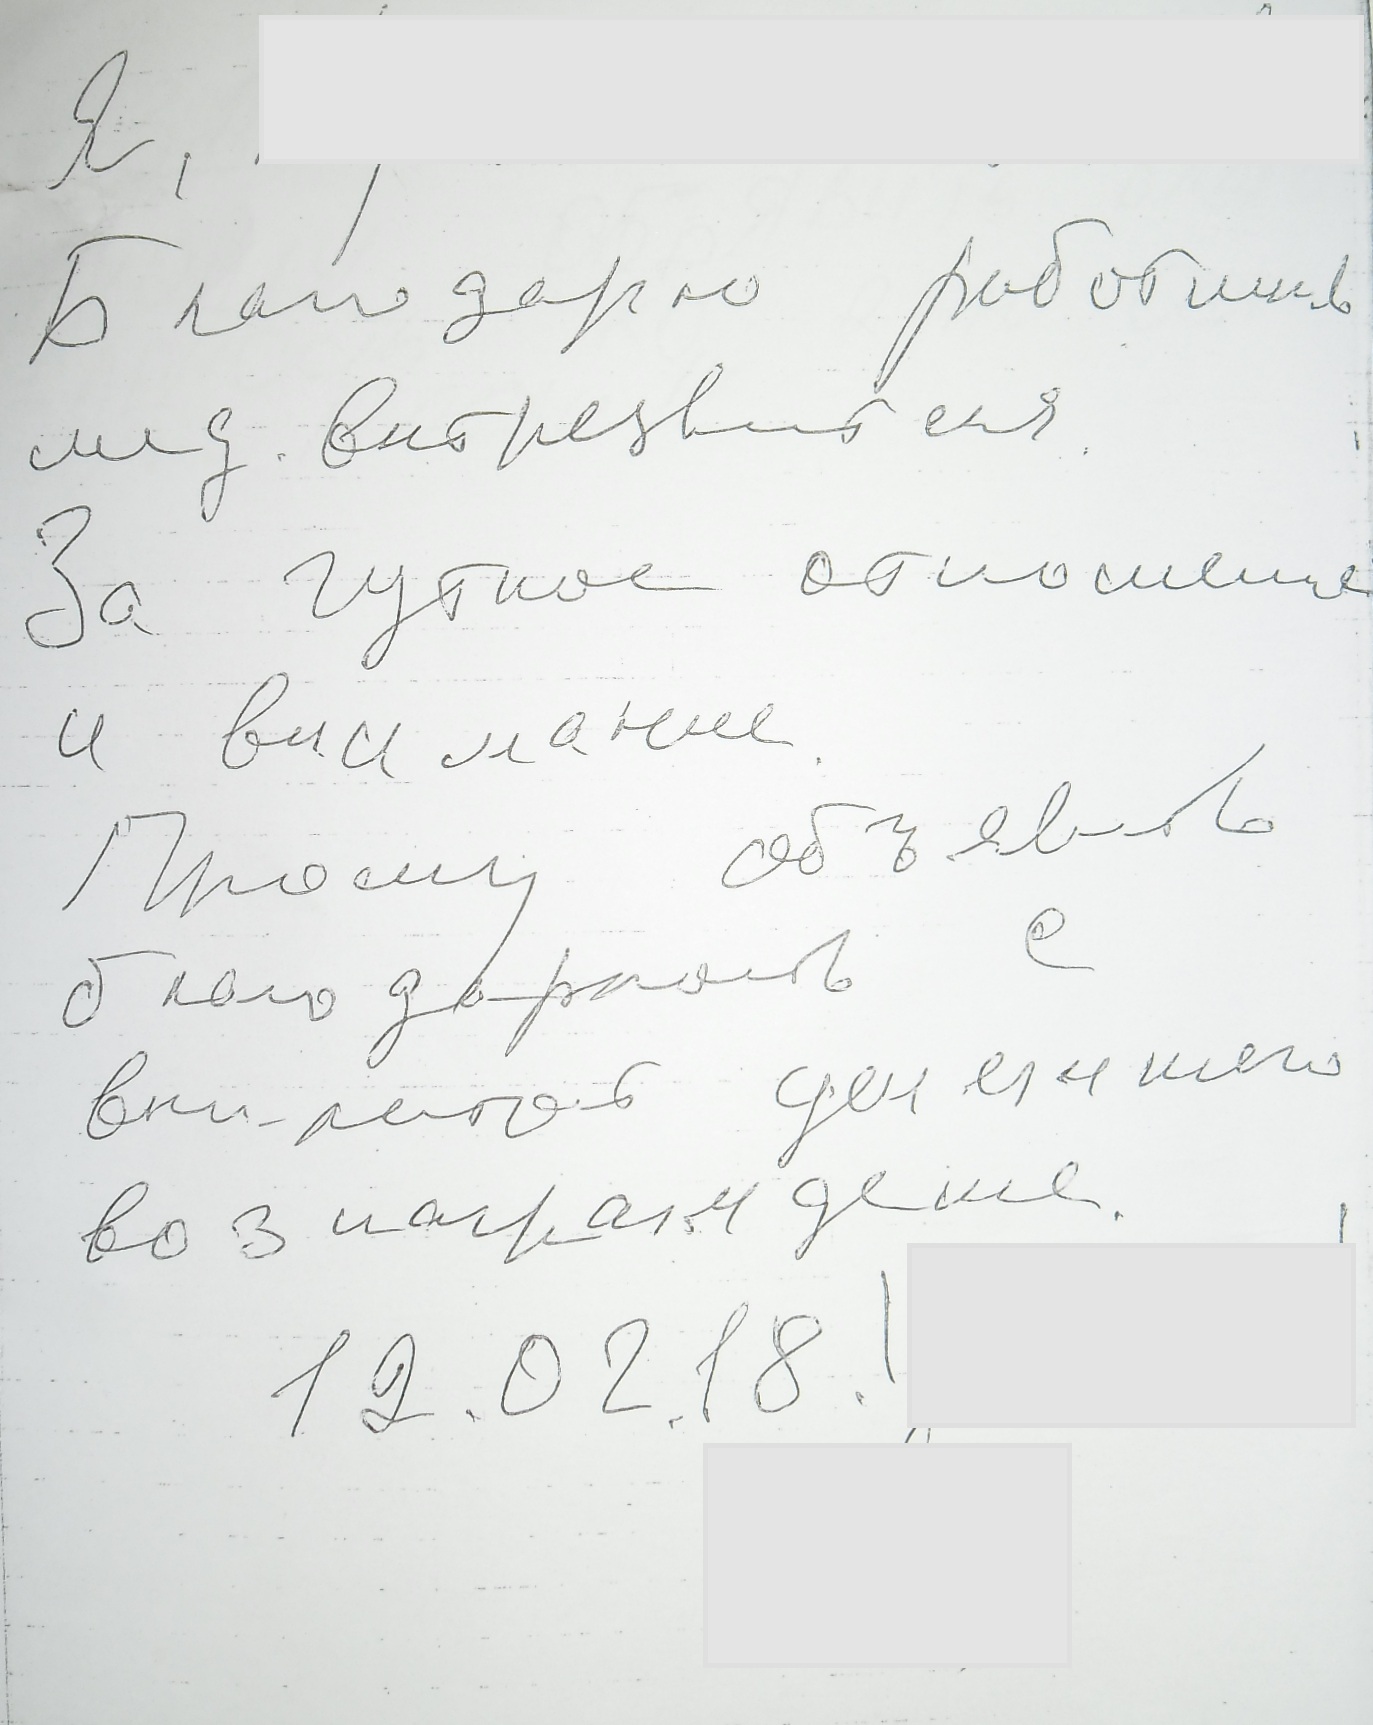 Я,
Благодарю работников
мед. вытрезвителя.
За чуткое отношение
и внимание.
Прошу объявить
благодарность с
денежного
вознаграждение.
12.02.18.